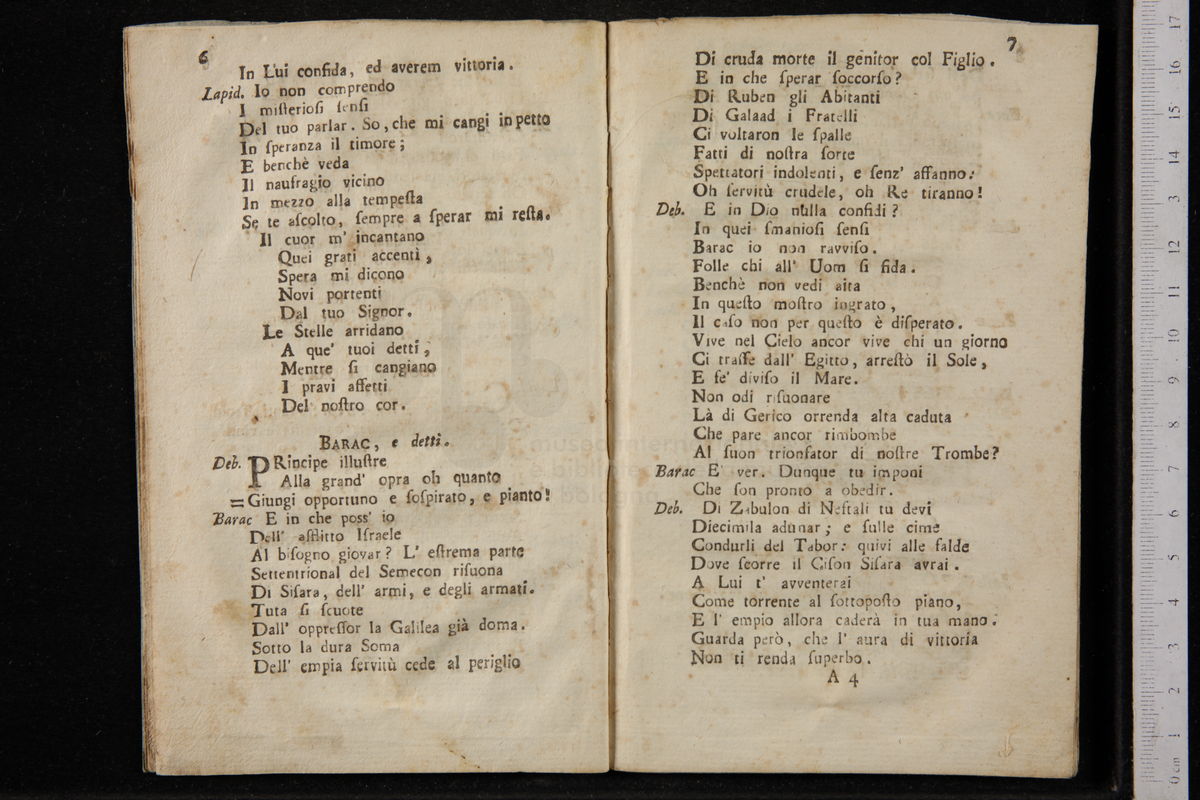 6
In Lui confida, ed averem vittoria.
Lapid. Io non comprendo
I miſterioſi ſenſi
Del tuo parlar. So, che mi cangi in petto
In ſperanza il timore;
E benchè veda
Il naufragio vicino
In mezzo alla tempeſta
Se te aſcolto, ſempre a ſperar mi reſta.
Il cuor m' incantano
Quei grati accenti,
Spera mi dicono
Novi portenti
Dal tuo Signor.
Le Stelle arridano
A que' tuoi detti,
Mentre ſi cangiano
I pravi affetti
Del noſtro cor.
BARAC, e detti.
Deb. PRincipe illuſtre
Alla grand' opra oh quanto
=Giungi opportuno e ſoſpirato, e pianto!
Barac E in che poss' io
Dell' afflitto Iſraele
Al biſogno giovar? L' eſtrema parte
Settentrional del Semecon riſuona
Di Siſara, dell' armi, e degli armati.
Tuta ſi ſcuote
Dall' oppreſſor la Galilea già doma.
Sotto la dura Soma
Dell' empia ſervitù cede al periglio
7
Di cruda morte il genitor col Figlio.
E in che ſperar ſoccorſo?
Di Ruben gli Abitanti
Di Galaad i Fratelli
Ci voltaron le ſpalle
Fatti di noſtra ſorte
Spettatori indolenti, e ſenz' affanno:
Oh ſervitù crudele, oh Re tiranno!
Deb. E in Dio nulla confidi?
In quei ſmanioſi ſenſi
Barac io non ravviſo.
Folle chi all' Uom ſi fida.
Benchè non vedi aita
In queſto moſtro ingrato,
Il caſo non per queſto è diſperato.
Vive nel Cielo ancor vive chi un giorno
Ci traſſe dall' Egitto, arreſtò il Sole,
E fe' diviſo il Mare.
Non odi riſuonare
Là di Gerico orrenda alta caduta
Che pare ancor rimbombe
Al ſuon trionfator di noſtre Trombe?
Barac E' ver. Dunque tu imponi
Che ſon pronto a obedir.
Deb. Di Zabulon di Neftali tu devi
Diecimila adunar; e ſulle cime
Condurli del Tabor: quivi alle falde
Dove ſcorre il Ciſon Siſara avrai.
A Lui t' avventerai
Come torrente al ſottopoſto piano,
E l' empio allora caderà in tua mano:
Guarda però, che l' aura di vittoria
Non ti renda ſuperbo.
A 4